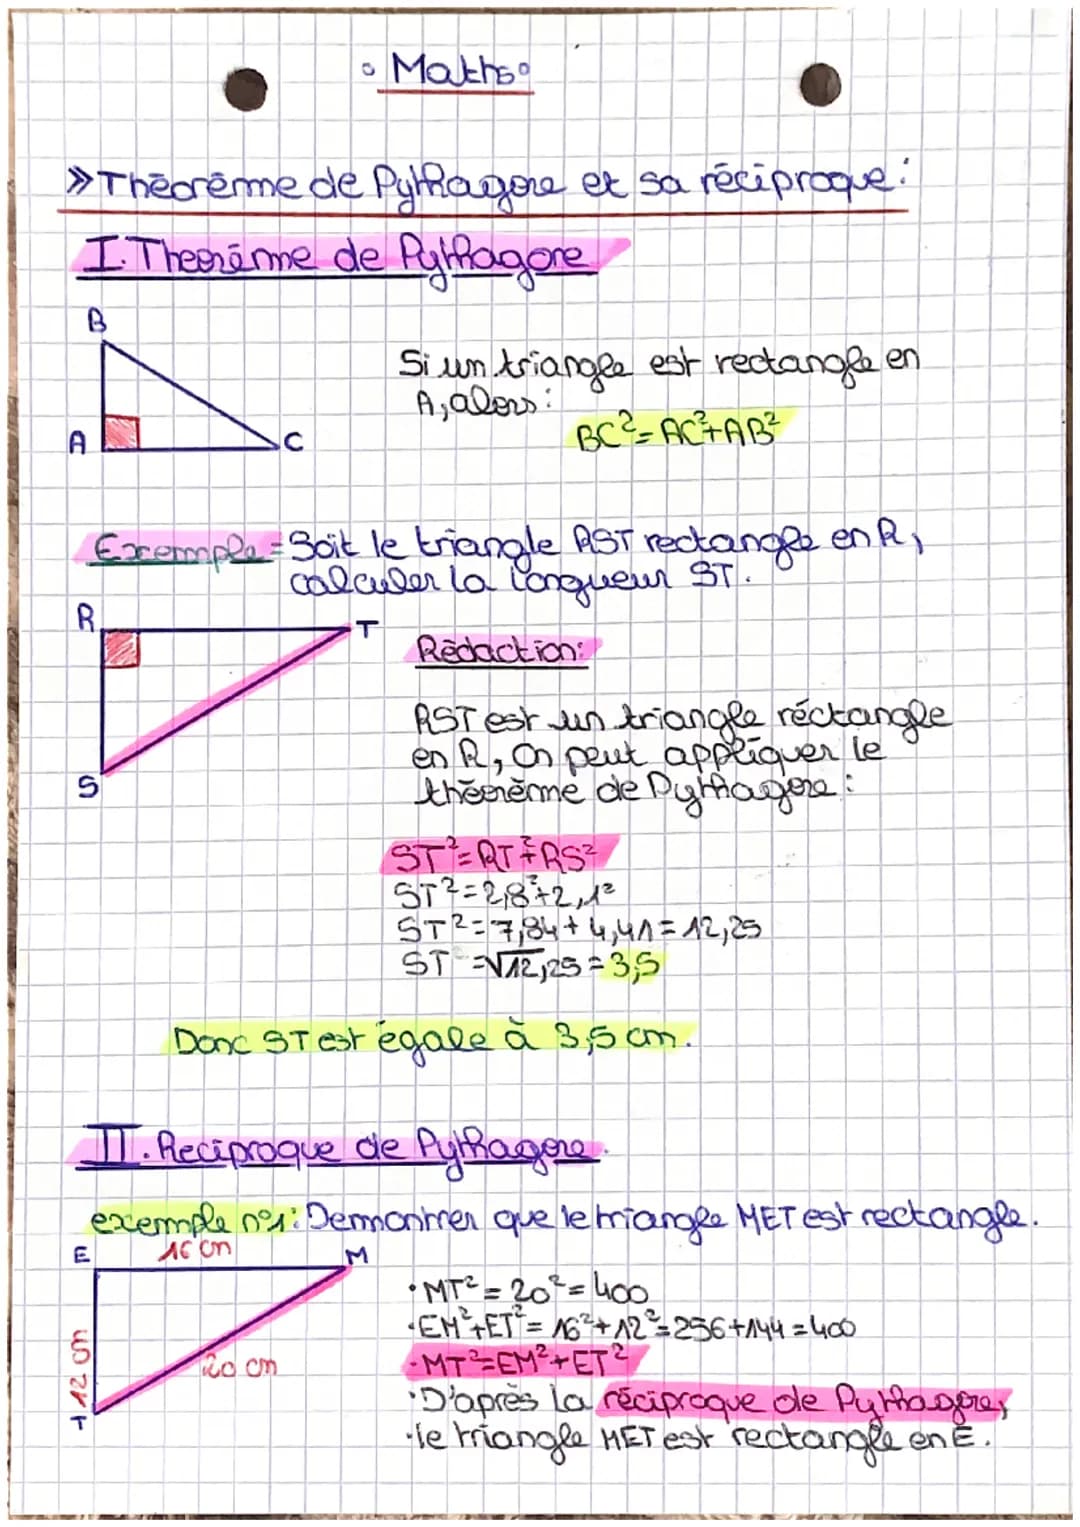 ° Maths °
» Théorème de Pythagore et sa réciproque :
I. Theorème de Pythagore
B
A
C
Si un triangle est rectangle en
A, alors :
BC² = AC² + AB²
Exemple = Soit le triangle RST rectangle en R,
calculer la longueur ST.
R
T
S
Rédaction :
RST est un triangle réctangle
en R, On peut appliquer le
théorème de Pythagore :
ST² = RT² + RS²
ST² = 2,8² + 2,1²
ST² = 7,84 + 4,41 = 12,25
ST = √12,25 = 3,5
Donc ST est égale à 3,5 cm.
II. Reciproque de Pythagore.
exemple n°1 : Demontrer que le triangle MET est rectangle.
E
16 cm
M
12 cm
20 cm
T
· MT² = 20² = 400
· EM² + ET² = 16² + 12² = 256 + 144 = 400
· MT² = EM² + ET²
· D'après la réciproque de Pythagore,
· le triangle MET est rectangle en E.